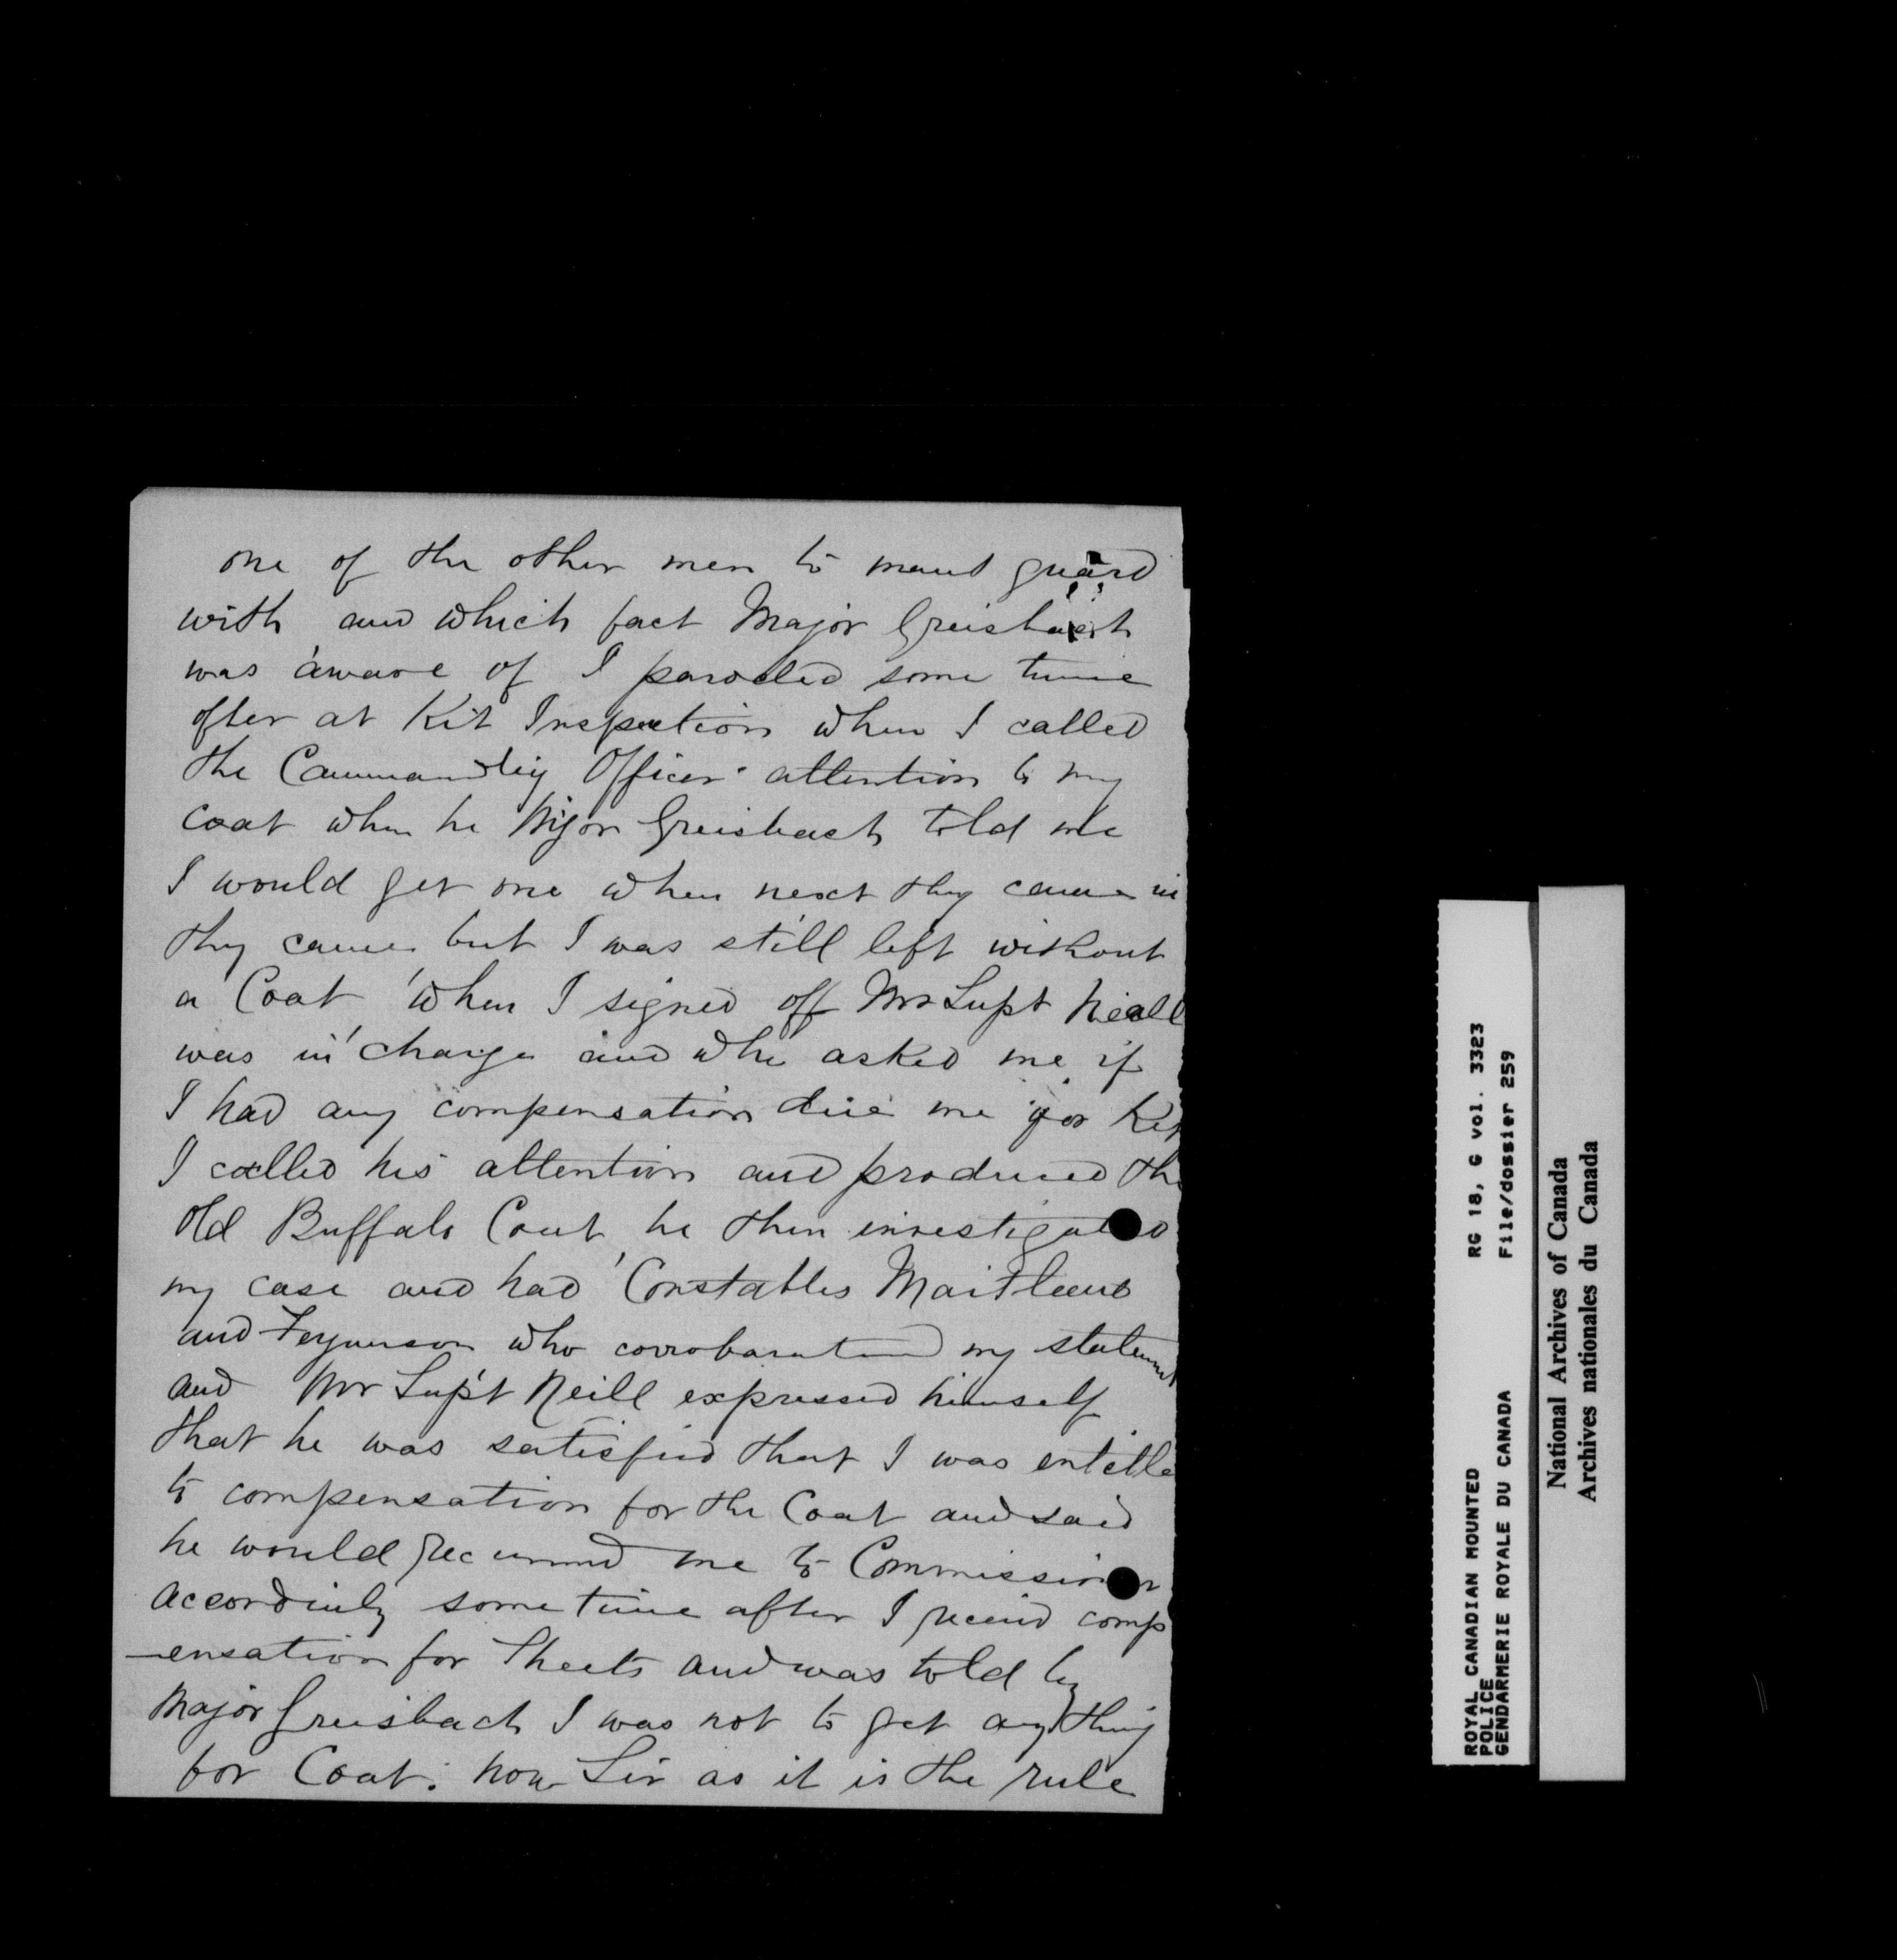 one of the other men to mount guard
with and which fact Major Greisbach
was aware of I paraded some time
after at Kit Inspection when I called
the Commanding Officer attention to my
coat when he Major Greisbach told me
I would get one when next they came in
they came but I was still left without
a Coat when I signed off Mr Supt Neill
was in charge and who asked me if
I had any compensation due me for Kit
I called his attention and produced the
old Buffalo Coat he then investigated
my case and had Constables Maitland
and Fergunson who corrobarated my statement
and Mr Sup't Neill expressed himself
that he was satisfied that I was entitle
to compensation for the Coat and said
he would recumnd me to Commissioner
accordinly some time after I received comp
-ensation for Sheets and was told by
Major Greisbach I was not to get any thing
for Coat. now Sir as it is the rule
ROYAL CANADIAN MOUNTED RG 18, G vol. 3323
POLICE File/dossier 259
GENDARMERIE ROYALE DU CANADA
National Archives of Canada
Archives nationales du Canada